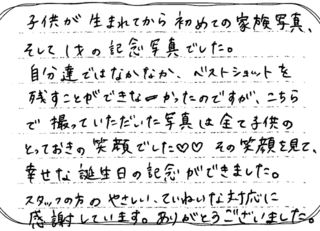 子供が生まれてから初めての家族写真、
そして1才の記念写真でした。
自分達ではなかなか、ベストショットを
残すことができなーかったのですが、こちら
で撮っていただいた写真は全て子供の
とっておきの笑顔でした♡♡ その笑顔を見て、
幸せな誕生日の記念ができました。
スタッフの方のやさしい、ていねいな対応に
感謝しています。ありがとうございました。